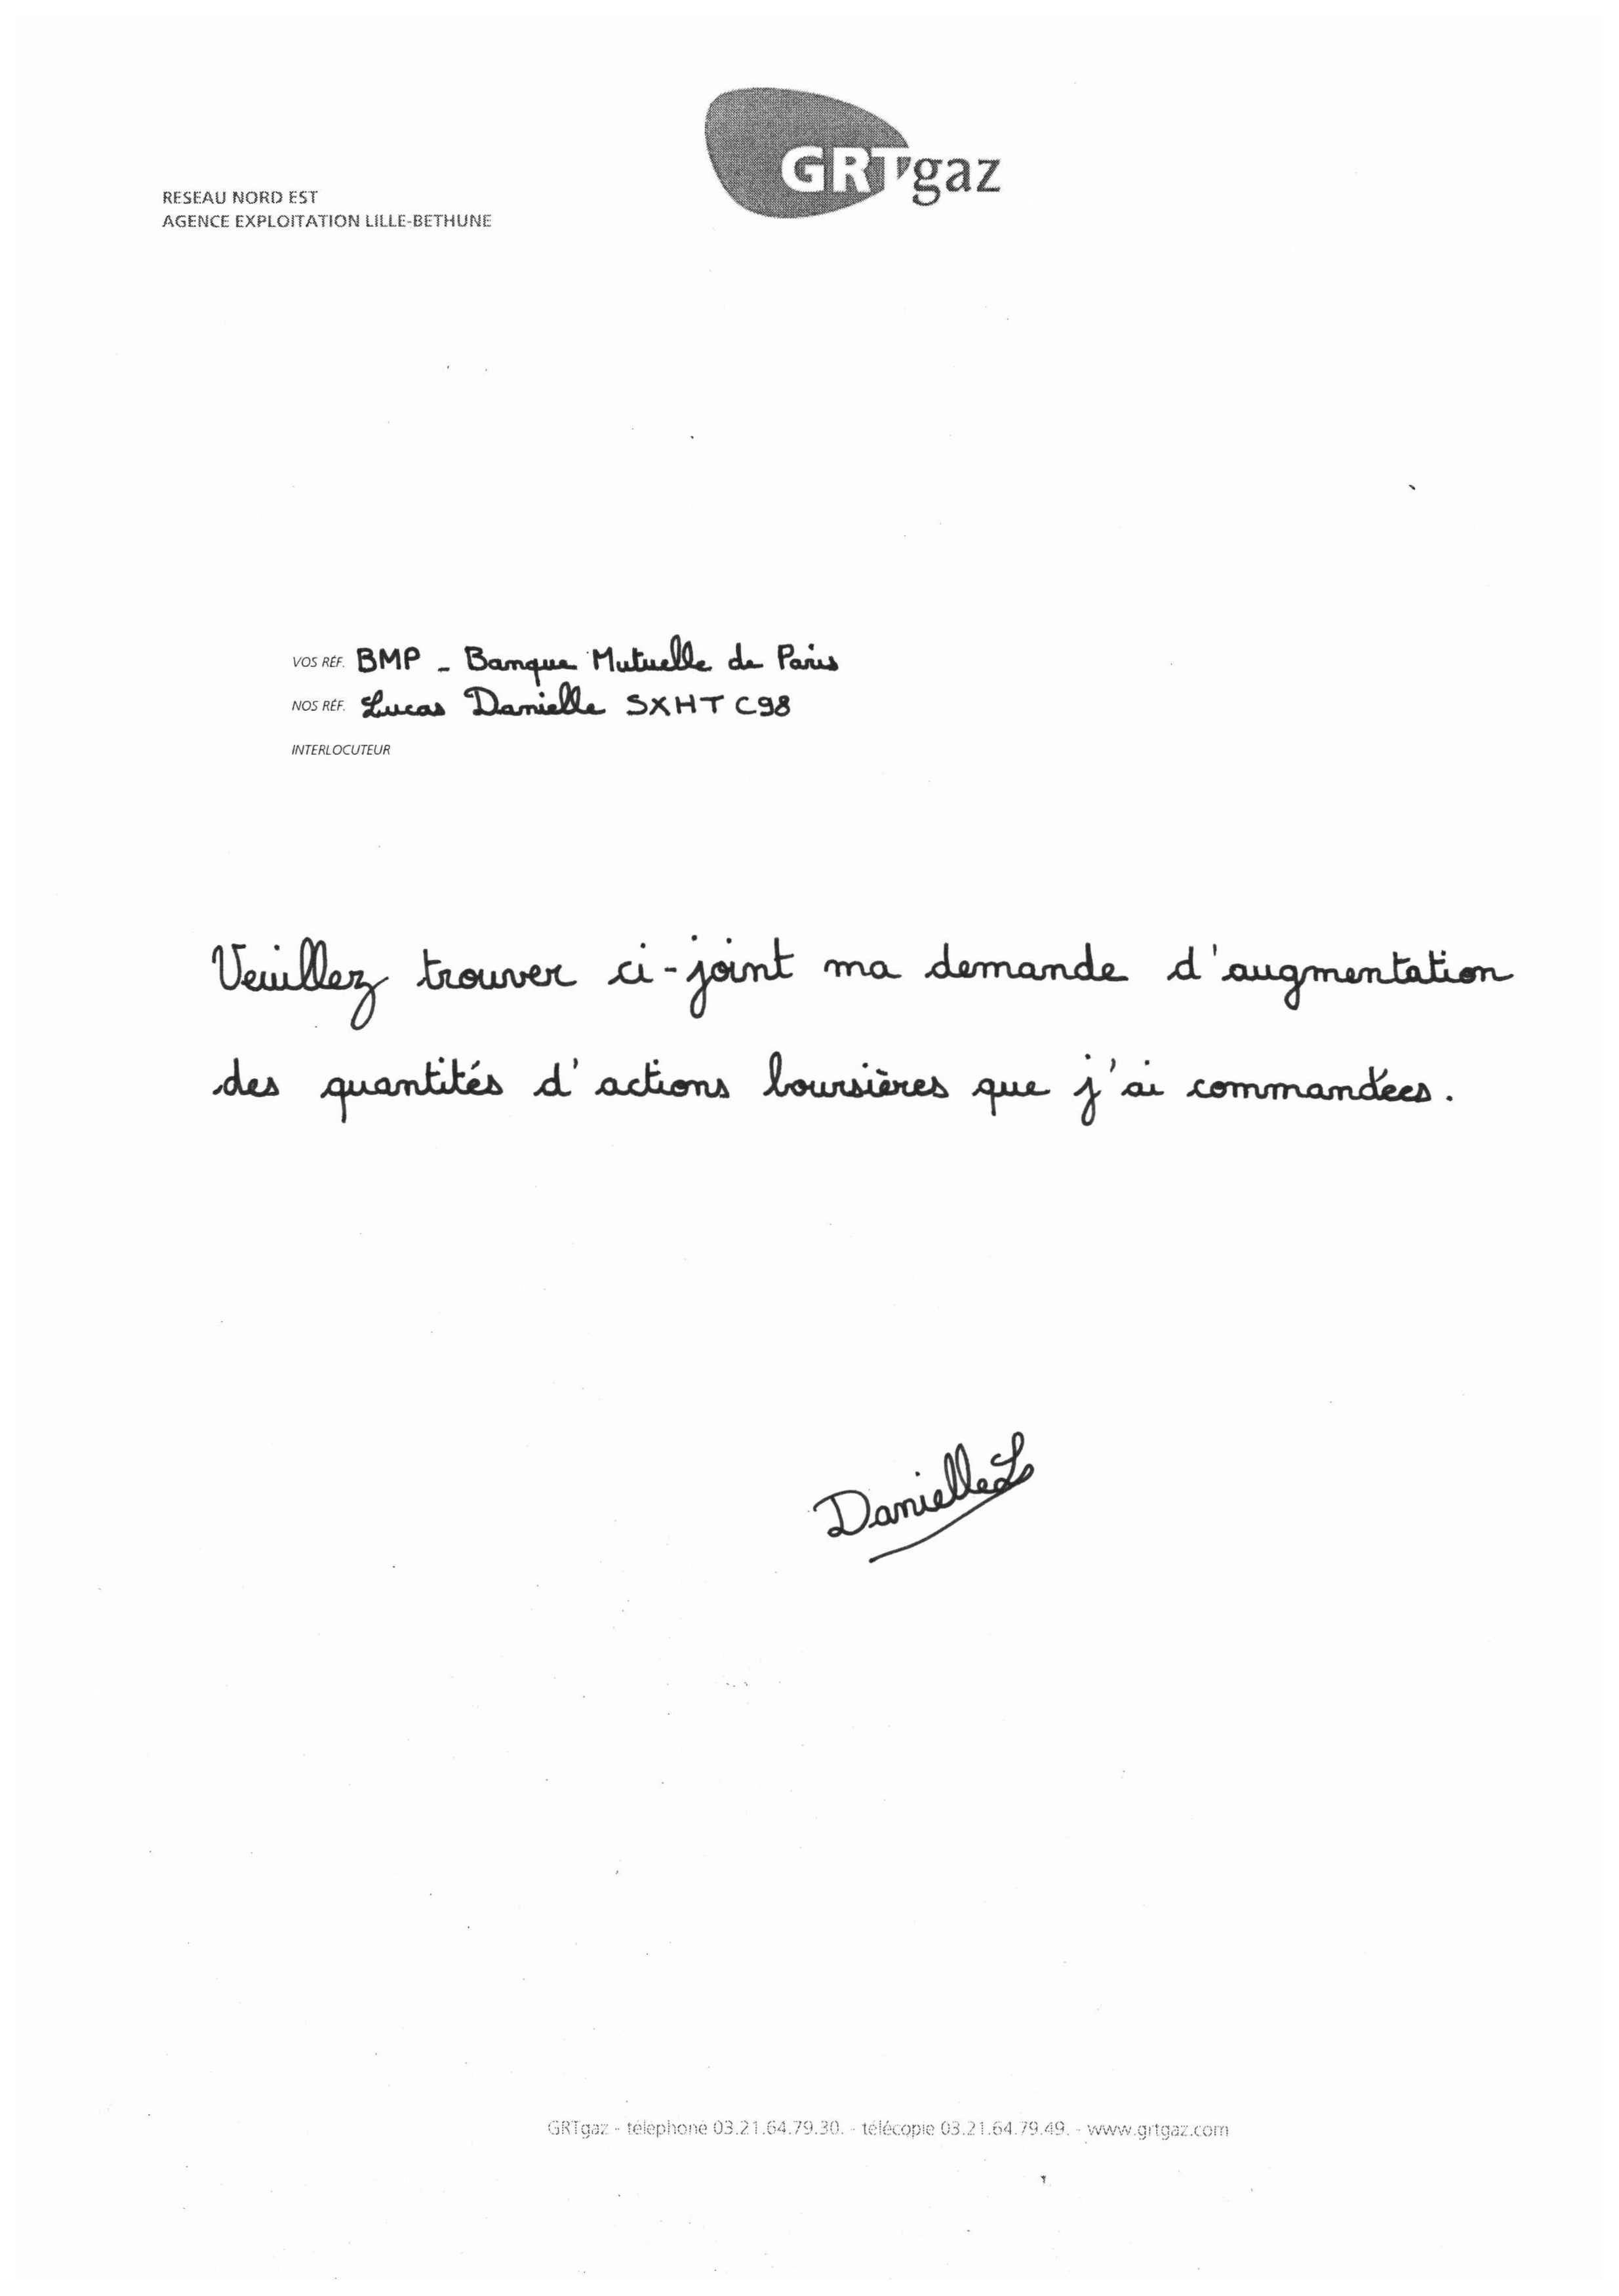 GRTgaz
RESEAU NORD EST
AGENCE EXPLOITATION LILLE-BETHUNE
VOS RÉF. BMP - Banque Mutuelle de Paris
NOS RÉF. Lucas Danielle SXHT C98
INTERLOCUTEUR
Veuillez trouver ci-joint ma demande d'augmentation
des quantités d'actions boursières que j'ai commandées.
Danielle L
GRTgaz - téléphone 03.21.64.79.30. - télécopie 03.21.64.79.49. - www.grtgaz.com